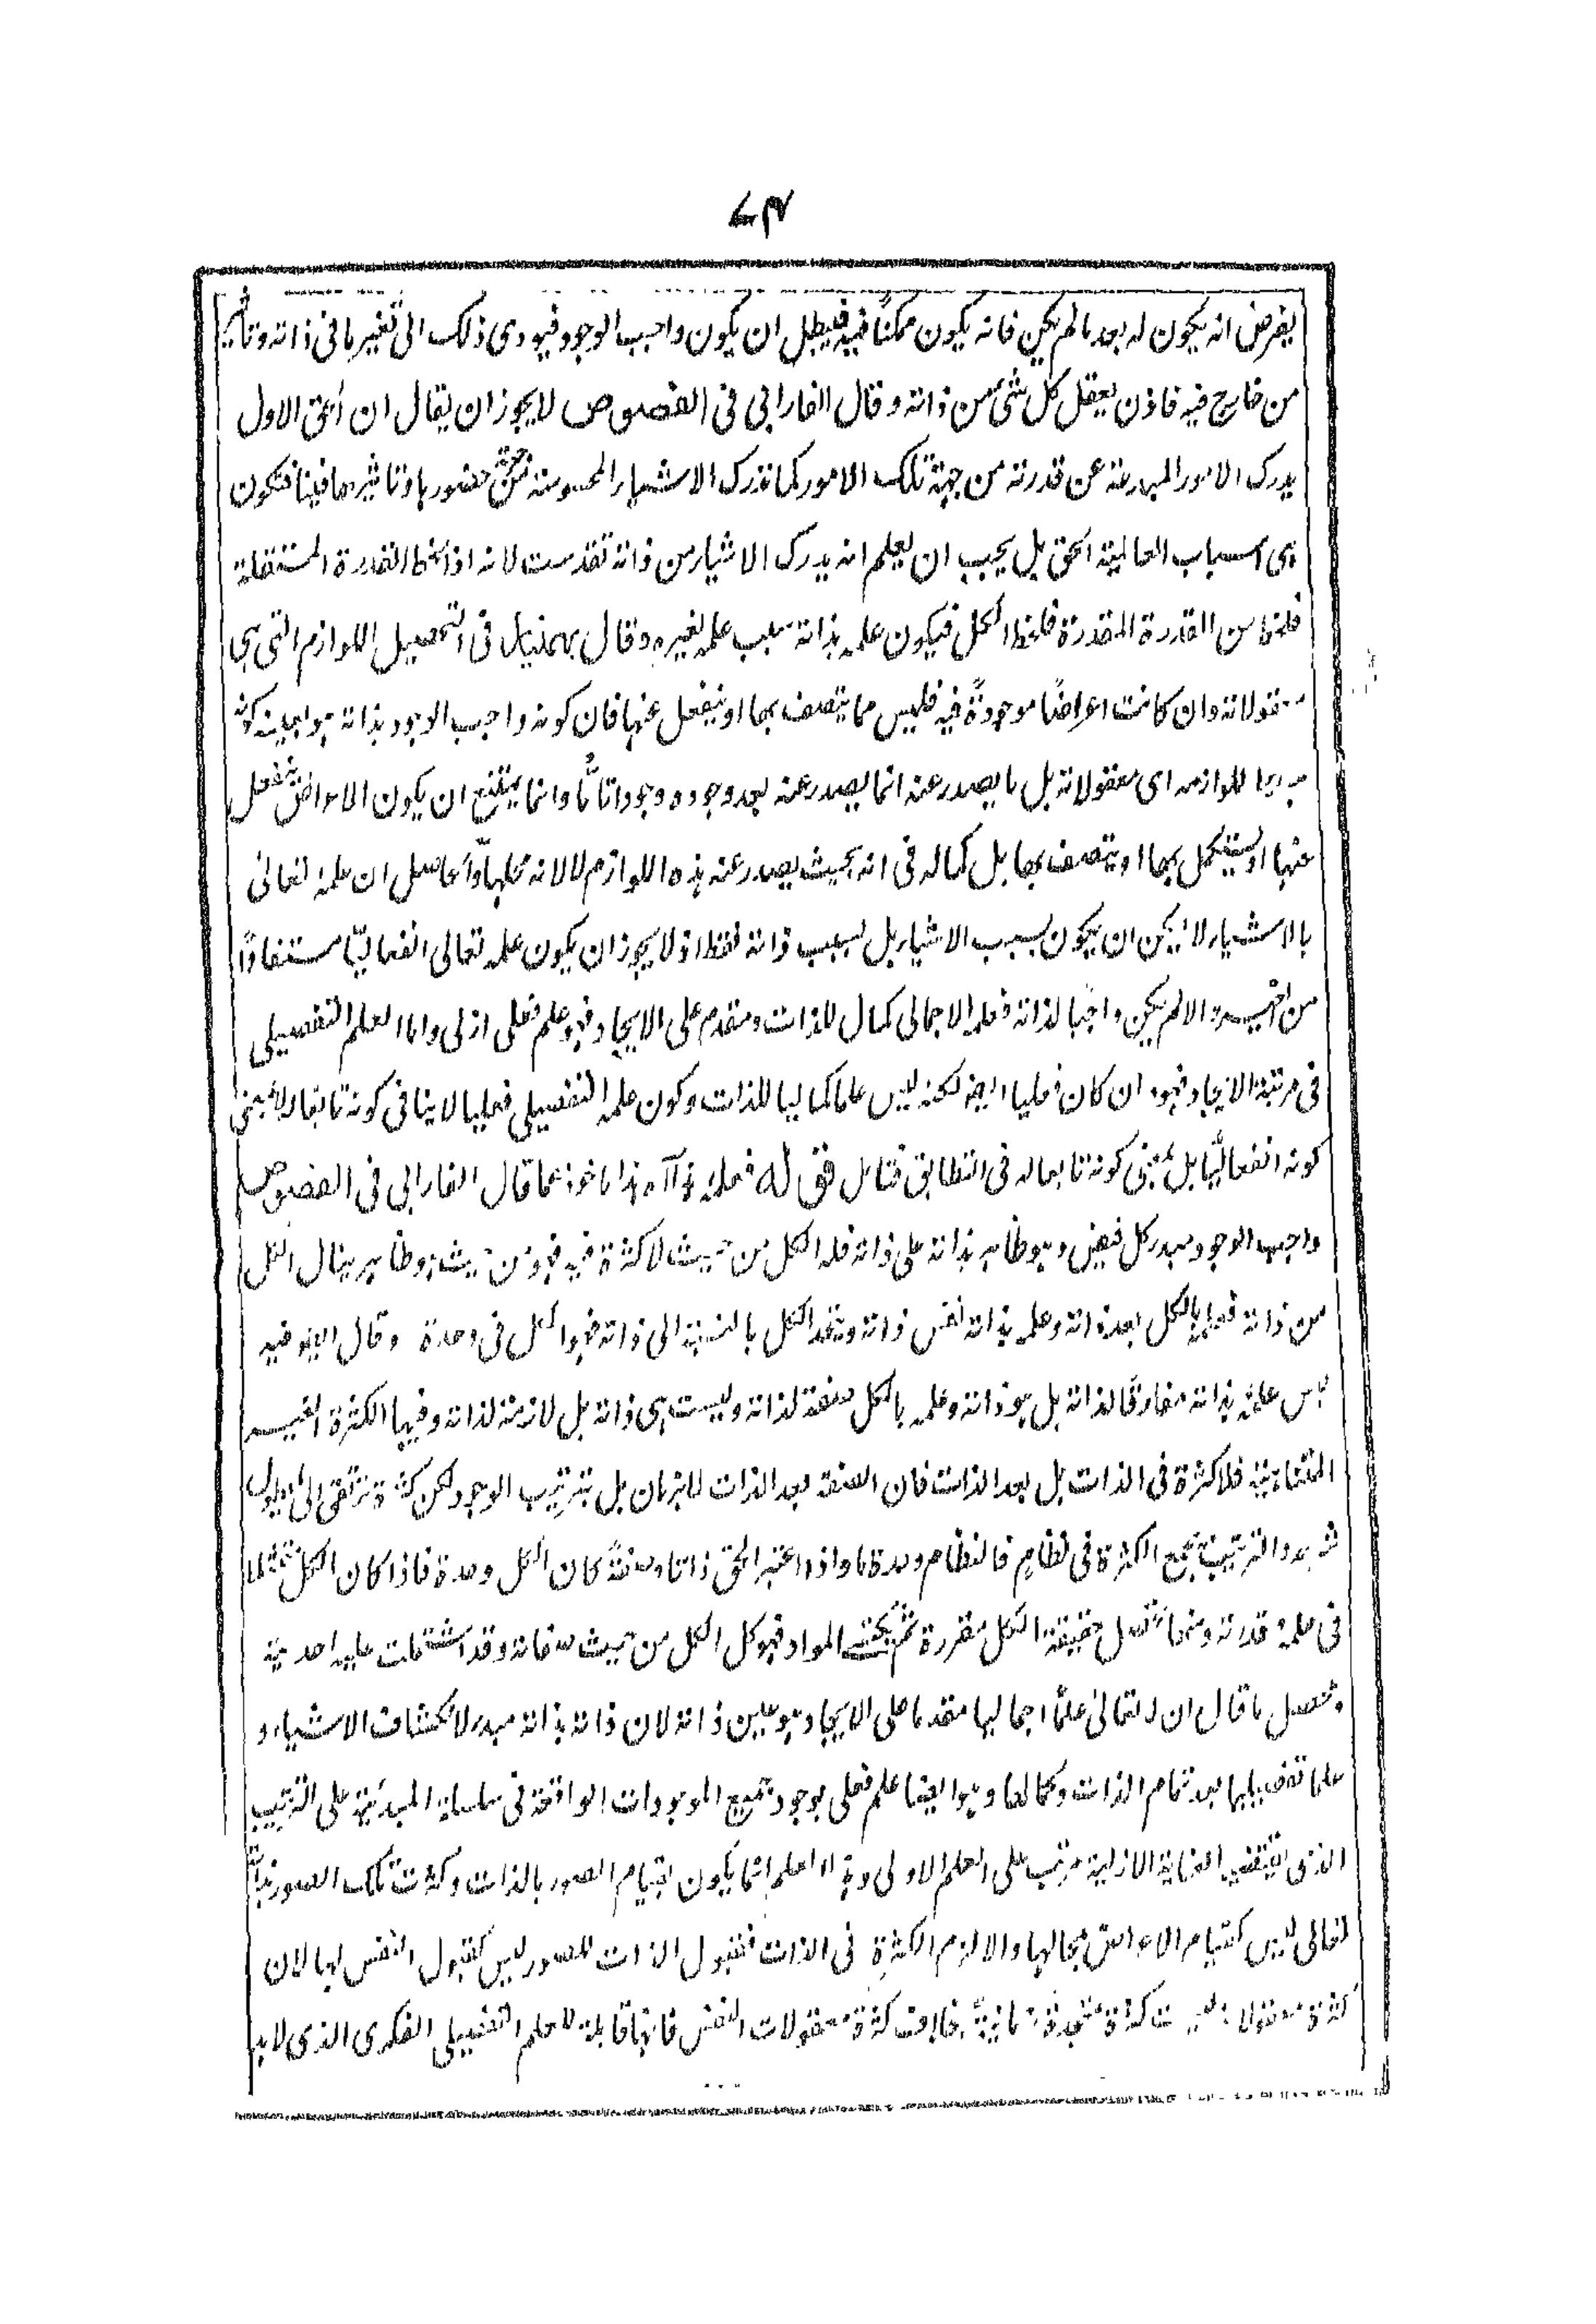 ۷۴
يفرض انه يكون له بعد ما لم يكن فانه يكون ممكنا فيه فيبطل ان يكون واجب الوجود فيودى ذلك الى تغير ما فى ذاته وتاثير
من خارج فيه فاذن يعقل كل شئ من ذاته وقال الفارابى فى الفصوص لا يجوز ان يقال ان الحق الاول
يدرك الامور المبدعة عن قدرته من جهة تلك الامور كما ندرك الاشياء المحسوسة من جهة حضورها وتاثيرها فينا فتكون
هى اسباب العالمية الحق بل يجب ان يعلم انه يدرك الاشياء من ذاته تقدست لانه اذا لحظ القدرة المستقلة
فلحظ من القدرة المقدرة فلحظ الكل فيكون علمه بذاته سبب علمه لغيره وقال بهمنيار فى التحصيل اللوازم التى هى
معقولاته وان كانت اعراضًا موجودةً فيه فليس مما يتصف بها او ينفعل عنها فان كونه واجب الوجود بذاته هو بعينه كونه
مبدءا للوازمه اى معقولاته بل ما يصدر عنه انما يصدر عنه بعد وجوده وجودا تامًّا وانما يمتنع ان يكون الاعراض ينفعل
عنها او يستكمل بها او يتصف بها بل كماله فى انه بحيث يصدر عنه هذه اللوازم لا لانه محلها والحاصل ان علمه تعالى
بالاشياء لا يمكن ان يكون بسبب الاشياء بل بسبب ذاته فقط اذ لا يجوز ان يكون علمه تعالى انفعاليّا مستفادًا
من الغير والا لم يكن واجبا لذاته فعلمه الاجمالى كمال للذات ومتقدم على الايجاد فهو علم فعلى ازلى واما العلم التفصيلى
فى مرتبة الايجاد فهو وان كان فعليا ايضا لكنه ليس علما كماليا للذات وكون علمه التفصيلى فعليا لا ينافى كونه تابعا لا بمعنى
كونه انفعاليّا بل بمعنى كونه تابعا له فى التطابق فتامل قوله فعلمه آه هذا ماخوذ مما قال الفارابى فى الفصوص
واجب الوجود مبدء كل فيض وهو ظاهر بذاته على ذاته فله الكل من حيث لا كثرة فيه فهو من حيث هو ظاهر ينال الكل
من ذاته فعلمه بالكل بعد ذاته وعلمه بذاته نفس ذاته ويتحد الكل بالنسبة الى ذاته فهو الكل فى وحدة وقال ايضا فيه
ليس علمه بذاته مفارقًا لذاته بل هو ذاته وعلمه بالكل صفة لذاته وليست هى ذاته بل لازمة لذاته وفيها الكثرة الغير
المتناهية فلا كثرة فى الذات بل بعد الذات فان الصفة بعد الذات لا بزمان بل بترتيب الوجود لكن كثرة ترتقى الى
والترتيب يجمع الكثرة فى نظام فالنظام وحدة ما واذا اعتبر الحق ذاتا وصفةً كان الكل وحدة فاذا كان الكل متمثلا
فى علمه قدرته ومنها تحصل حقيقة الكل مقررة ثم يكتسى المواد فهو كل الكل من حيث صفاته وقد اشتملت عليه احدية
ومحصل ما قال ان له تعالى علمًا اجماليا مقدما على الايجاد هو عين ذاته لان ذاته بذاته مبدء لانكشاف الاشياء و
علما تفصيليا بعد تمام الذات وكمالها وهو ايضا علم فعلى بوجود جميع الموجودات الواقعة فى سلسلة المبدئية على الترتيب
الذى يقتضيه العناية الازلية مرتب على العلم الاولى وهذا العلم انما يكون بقيام الصور بالذات وكثرت تلك الصور
تعالى ليس كقيام الاعراض بمحالها والا لزم الكثرة فى الذات فقبول الذات للصور ليس كقبول النفس لها لان
كثرة معقولاته ليست كثرة متجددة زمانيةً بخلاف كثرة معقولات النفس فانها قابلة للعلم التفصيلى الفكرى الذى لا بد